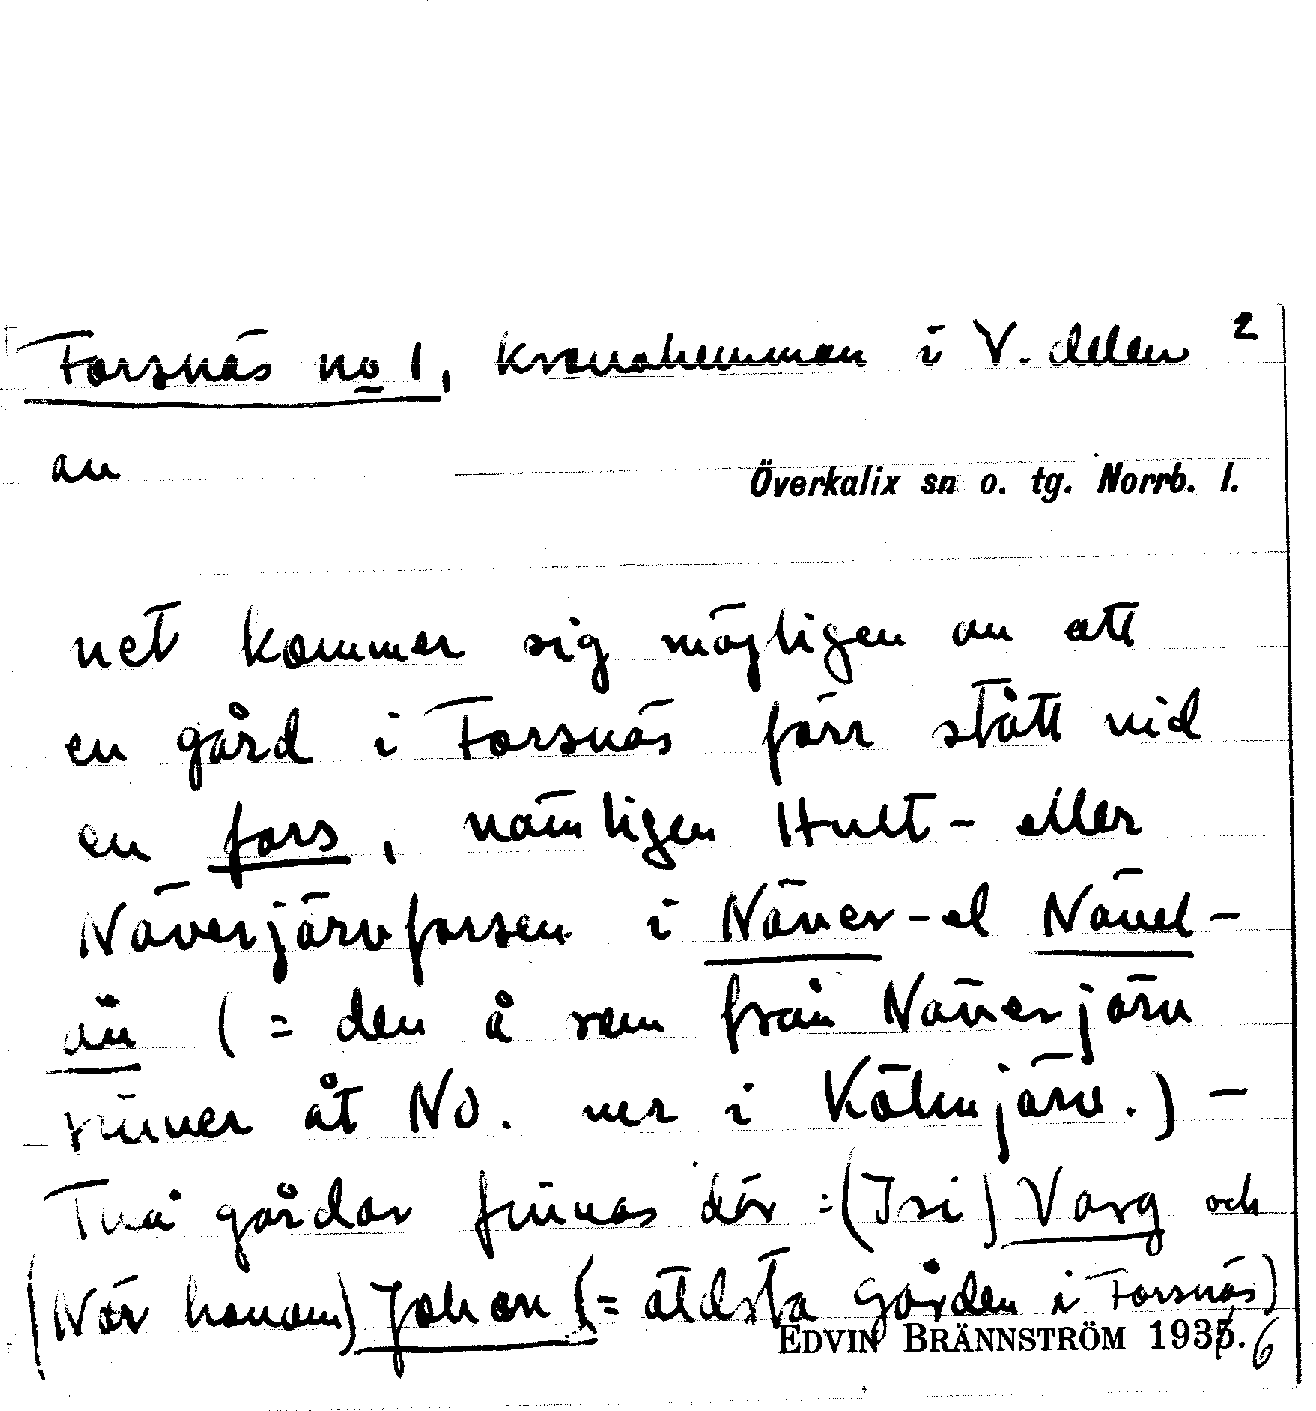 2
Forsnäs no 1, kronohemman i V. delen
av
Överkalix sn o. tg. Norrb. l.
net kommer sig möjligen av att
en gård i Forsnäs förr stått vid
en fors, nämligen Hult- eller
Näverjärvforsen i Näver-el Nävel-
ån (= den å som från Näverjärv
rinner åt NO. ner i Kölmjärv.) -
Två gårdar finnas där :(Isi) Varg och
(När honom) Johan (= äldsta gården i Forsnäs)
EDVIN BRÄNNSTRÖM 1935. 6